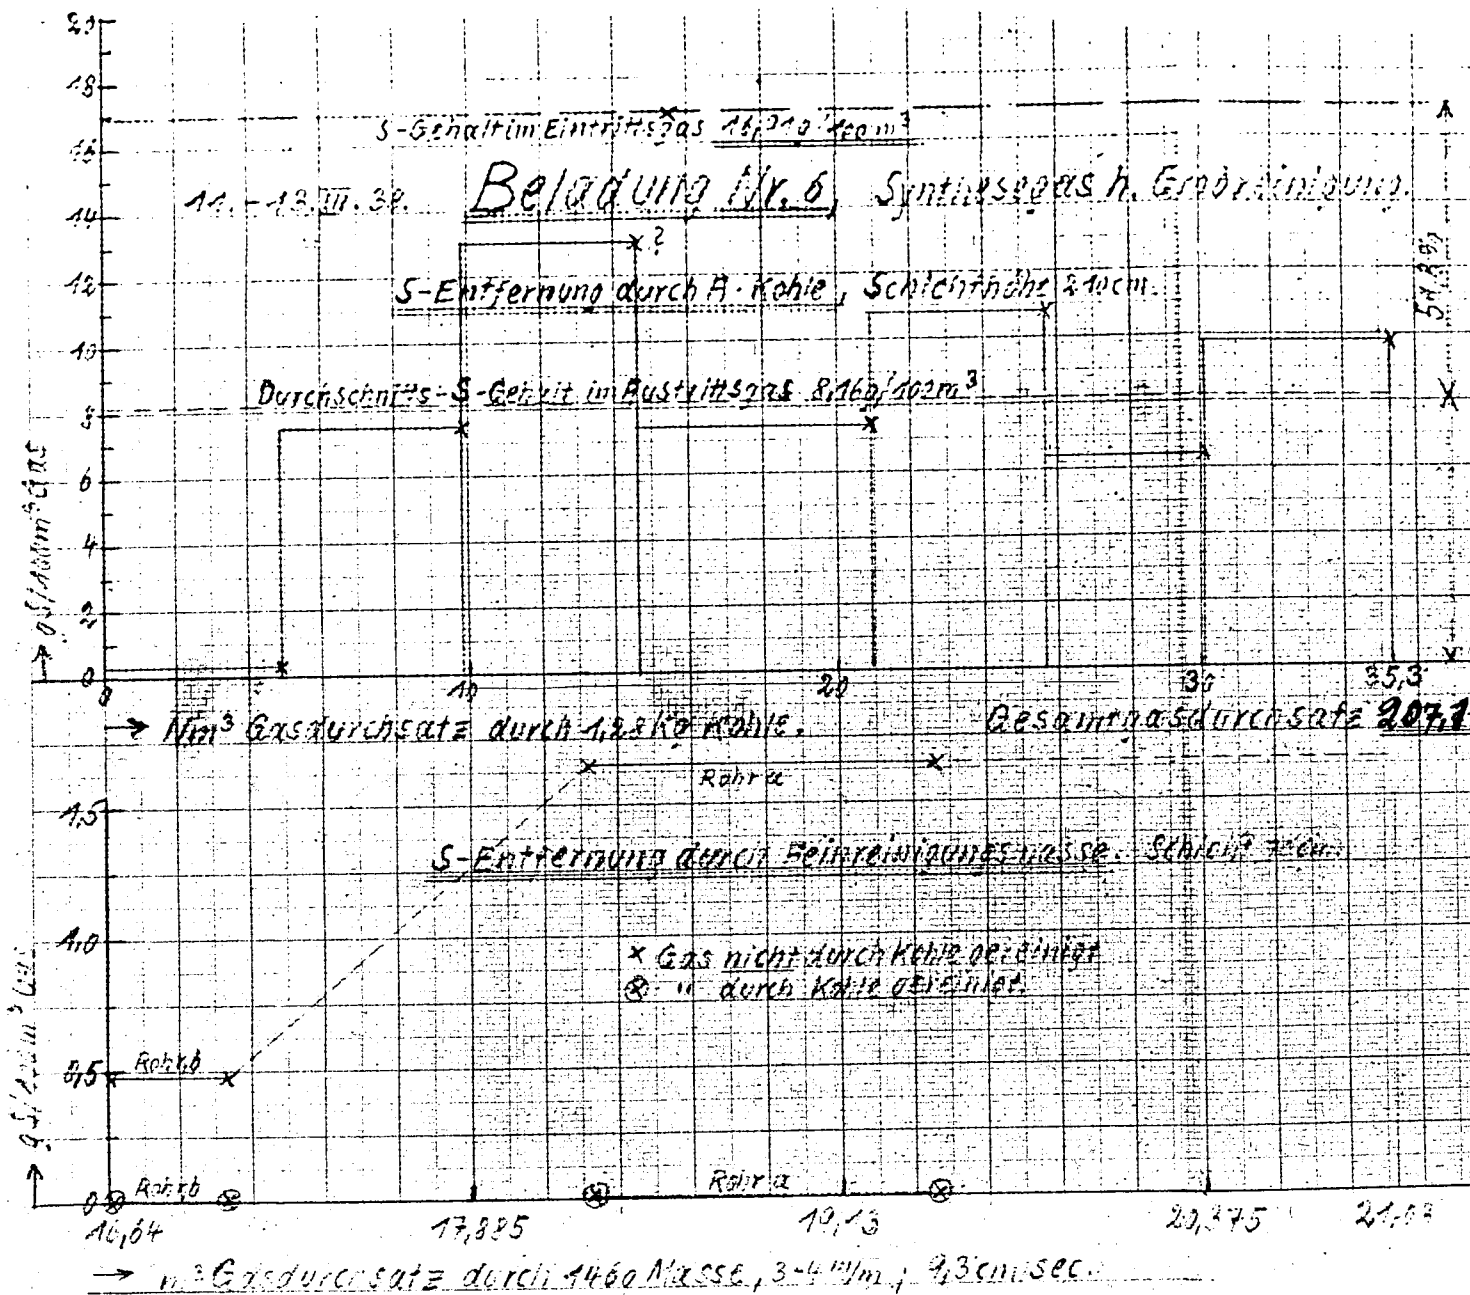 20
18
S-Gehalt im Eintrittsgas 16,91g/100m³
16
11.-13.III.38. Beladung Nr. 6, Synthesegas n. Grobreinigung.
14
?
12
S-Entfernung durch A-Kohle, Schichthöhe 210cm.
10
Durchschnitts-S-Gehalt im Austrittsgas 8,16g/100m³
8
6
4
2
0
→ gS/100m³ Gas
0 10 20 30 35,3
→ Nm³ Gasdurchsatz durch 1,28kg Kohle. Gesamtgasdurchsatz 207,1
Rohr a
1,5
S-Entfernung durch Feinreinigungsmasse. Schicht
1,0
× Gas nicht durch Kohle gereinigt
⊗ " durch Kohle gereinigt.
0,5 Rohr b
→ gS/100m³ Gas
0 Rohr b Rohr a
16,64 17,885 19,13 20,375 21,63
→ m³ Gasdurchsatz durch 146g Masse, 3-4 m/m; 9,3cm/sec.